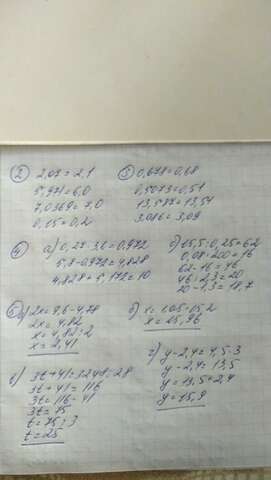 ② 2,07=2,1
5,971=6,0
7,0369=7,0
0,15=0,2
③ 0,678=0,68
0,5073=0,51
13,587=13,59
3,086=3,09
④ а) 0,27·3,6=0,972
5,8-0,972=4,828
4,828+5,172=10
б) 15,5:0,25=62
0,08·200=16
62-16=46
46:2,3=20
20-1,3=18,7
⑤ а) 2x=9,6-4,78
2x=4,82
x=4,82:2
x=2,41
б) x=
x=
в) 3t+41=3248:28
3t+41=116
3t=116-41
3t=75
t=75:3
t=25
г) y-2,4=4,5·3
y-2,4=13,5
y=13,5+2,4
y=15,9